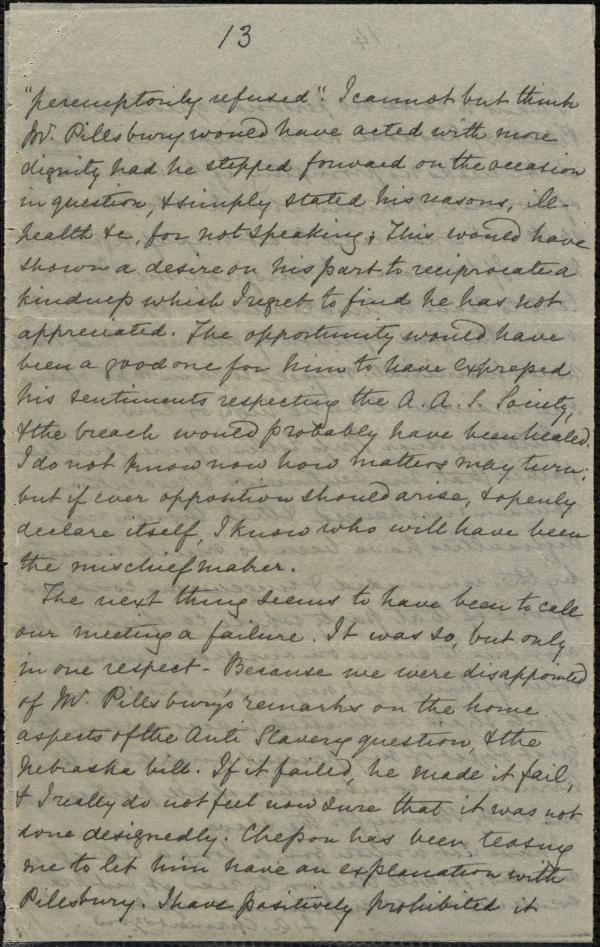 13
"peremptorily refused". I cannot but think
Mr. Pillsbury would have acted with more
dignity had he stepped forward on the occasion
in question, & simply stated his reasons, ill-
health &c, for not speaking; This would have
shown a desire on his part to reciprocate a
kindness which I regret to find he has not
appreciated. The opportunity would have
been a good one for him to have expressed
his sentiments respecting the A. A. S. Society,
& the breach would probably have been healed.
I do not know now how matters may turn:
but if ever opposition should arise, & openly
declare itself, I know who will have been
the mischief maker.
The next thing seems to have been to call
our meeting a failure. It was so, but only
in one respect - Because we were disappointed
of Mr. Pillsbury's remarks on the home
aspects of the Anti Slavery question, & the
Nebraska bill. If it failed, he made it fail,
& I really do not feel now sure that it was not
done designedly. Chesson has been teasing
me to let him have an explanation with
Pillsbury. I have positively prohibited it